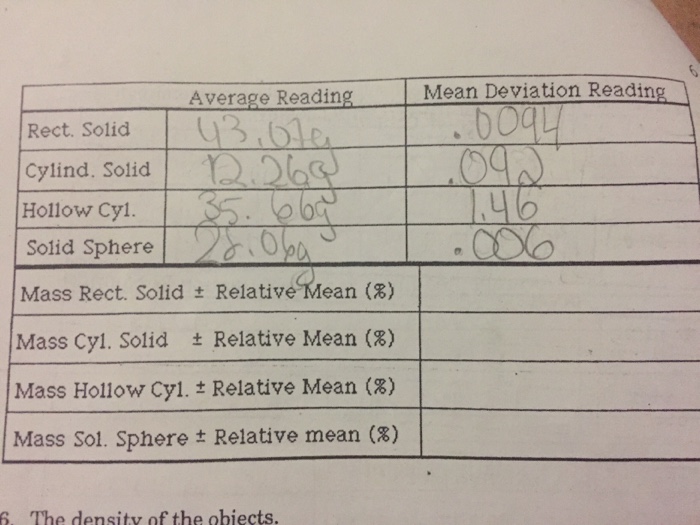 Average Reading Mean Deviation Reading
Rect. Solid 43.07g .0094
Cylind. Solid 12.26g .092
Hollow Cyl. 35.66g 1.46
Solid Sphere 28.06g .006
Mass Rect. Solid ± Relative Mean (%)
Mass Cyl. Solid ± Relative Mean (%)
Mass Hollow Cyl. ± Relative Mean (%)
Mass Sol. Sphere ± Relative mean (%)
6. The density of the objects.